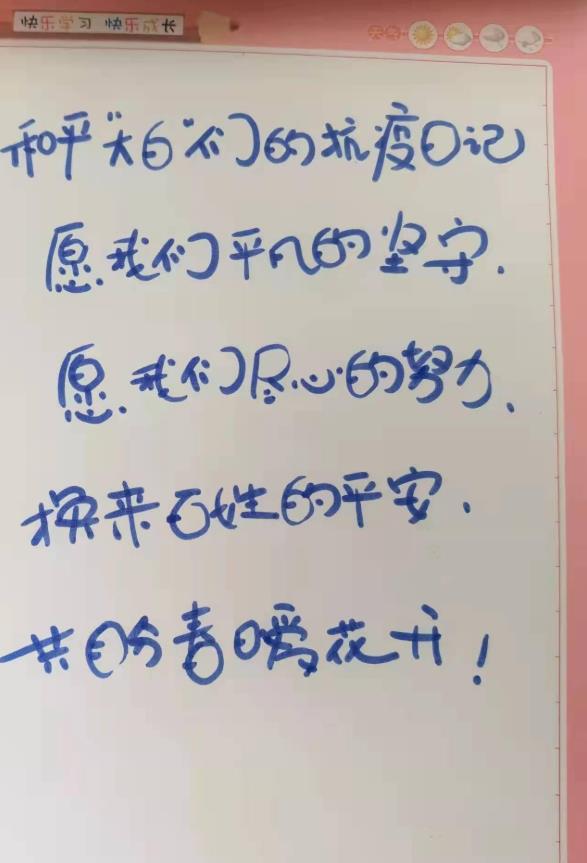 快乐学习 快乐成长
天气
和平"大白"们的抗疫日记
愿我们平凡的坚守.
愿我们尽心的努力、
换来百姓的平安.
共盼春暖花开!